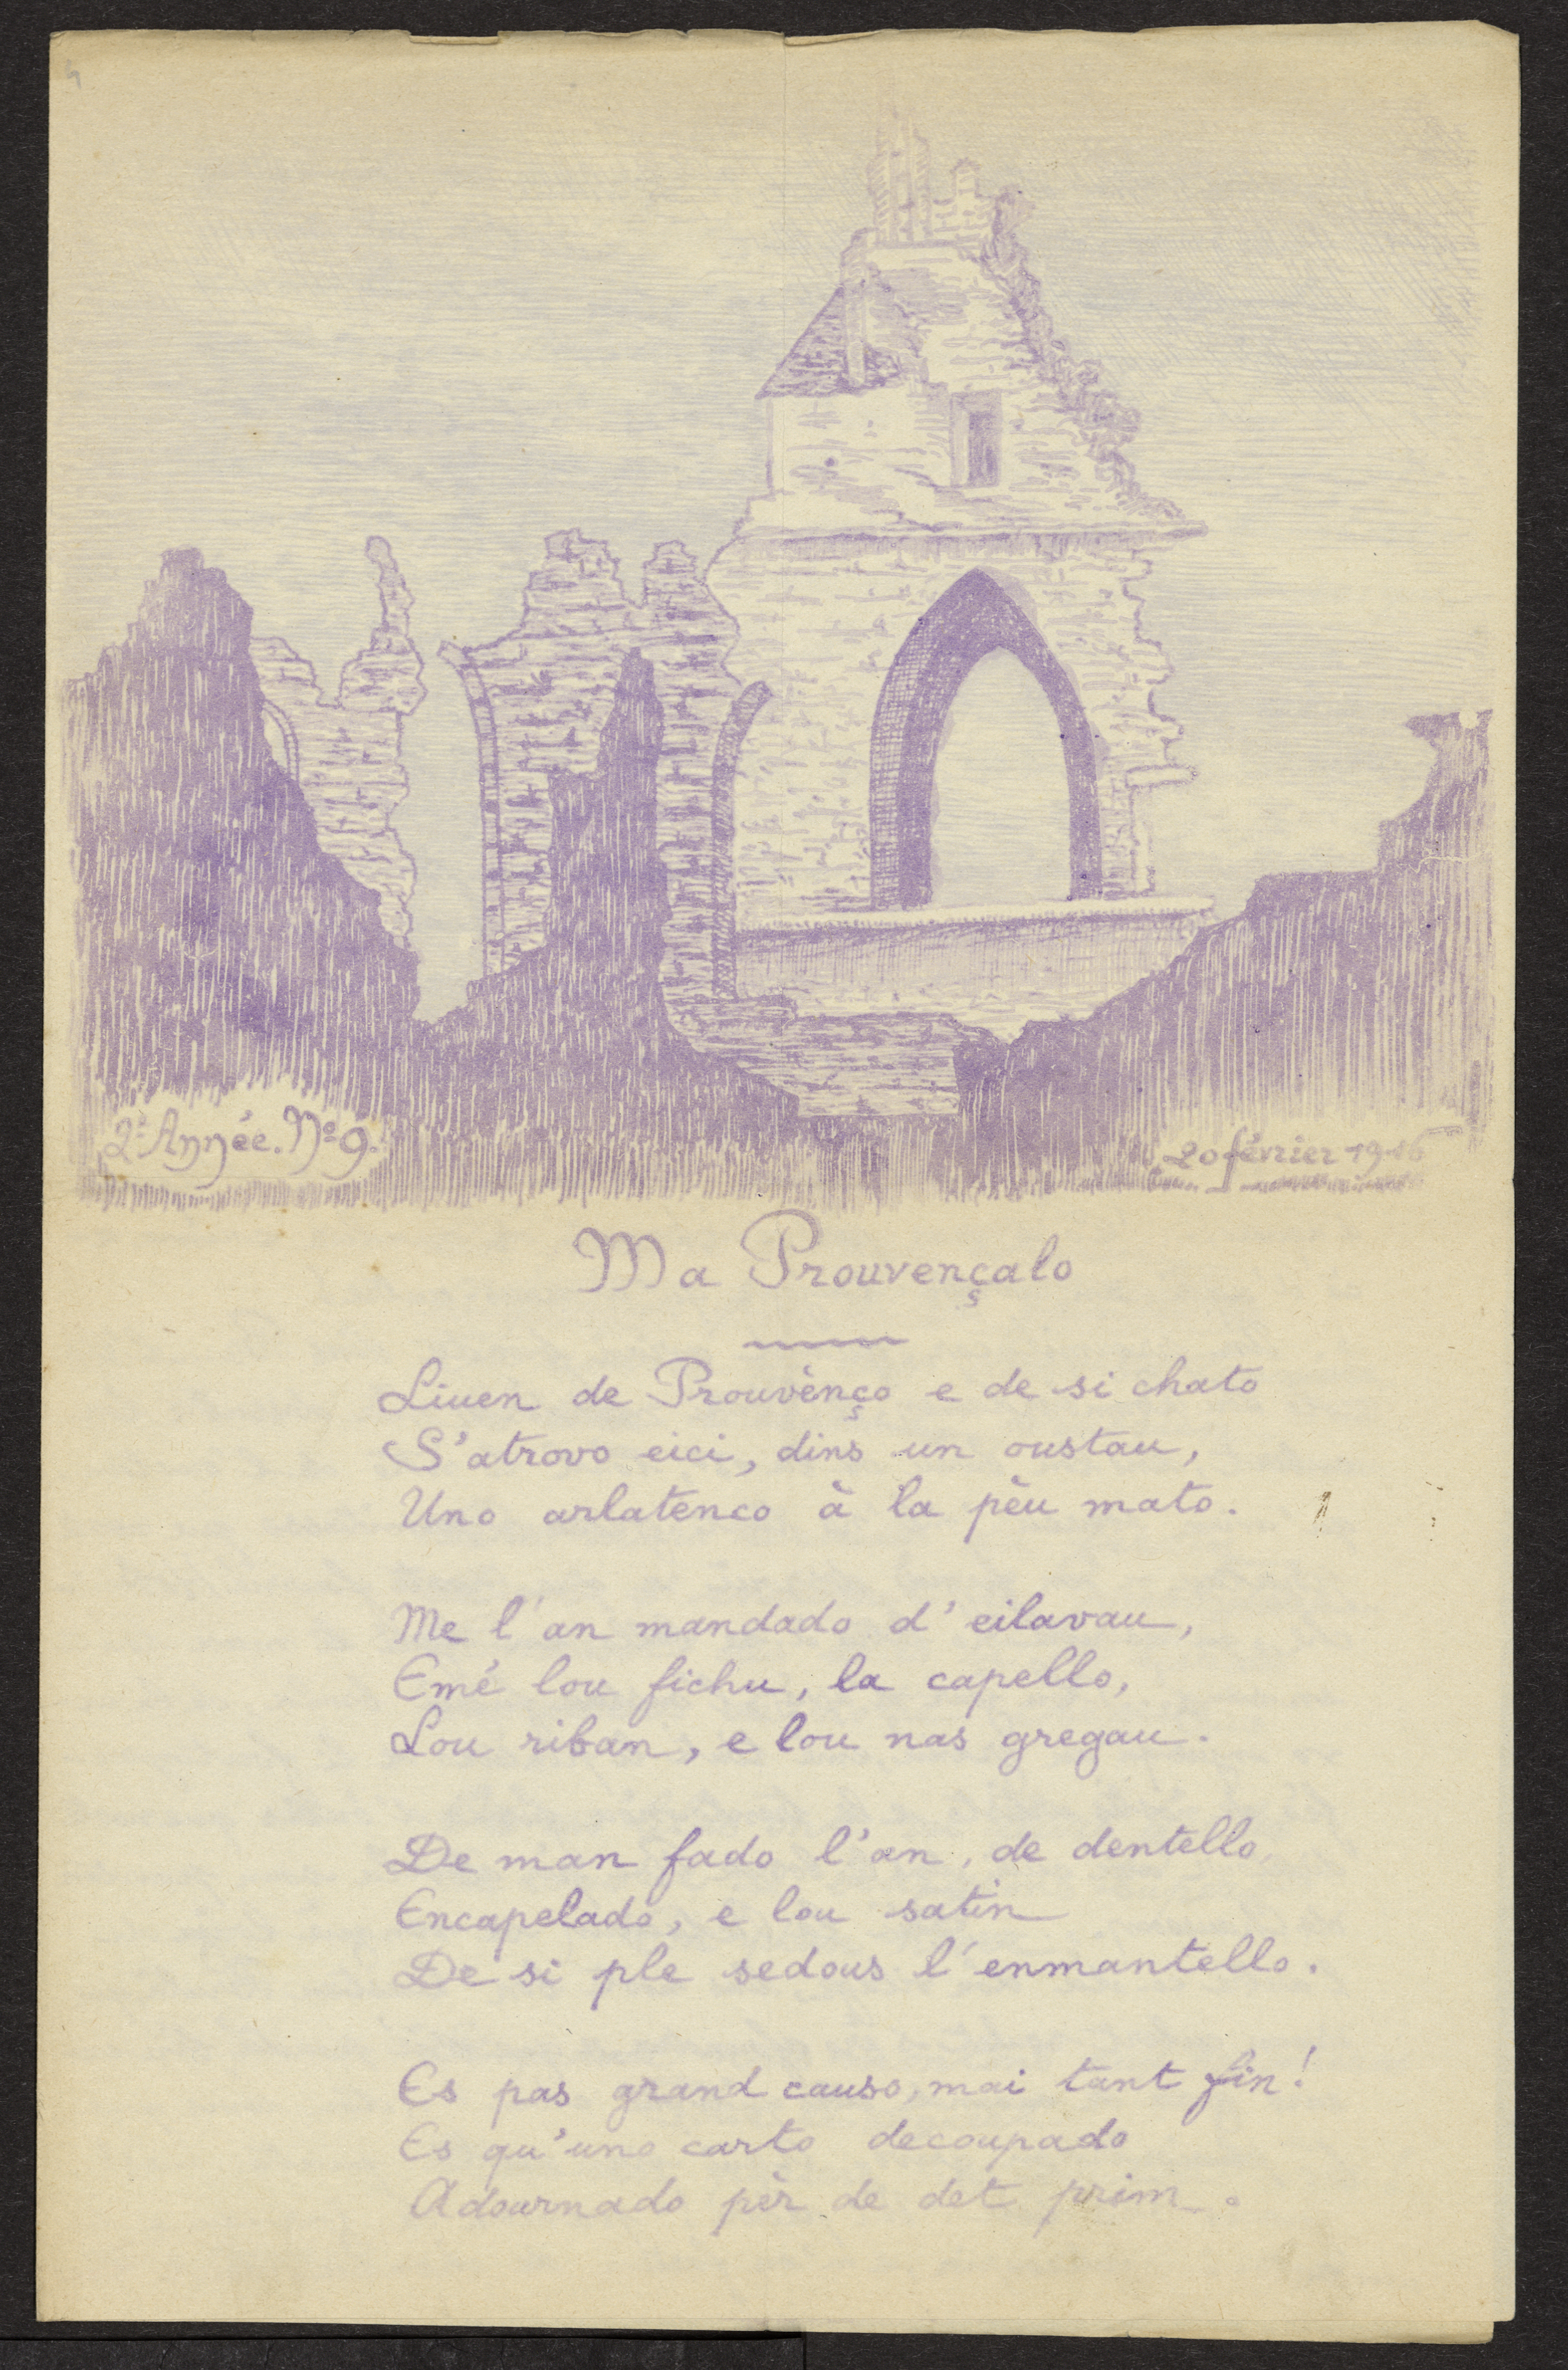 2e Année. No 9.
20 février 1916
Ma Prouvençalo
Liuen de Prouvènço e de si chato
S'atrovo eici, dins un oustau,
Uno arlatenco à la pèu mato.
Me l'an mandado d'eilavau,
Emé lou fichu, la capello,
Lou riban, e lou nas gregau.
De man fado l'an, de dentello,
Encapelado, e lou satin
De si ple sedous l'enmantello.
Es pas grand causo, mai tant fin!
Es qu'uno carto decoupado
Adournado pèr de det prim.